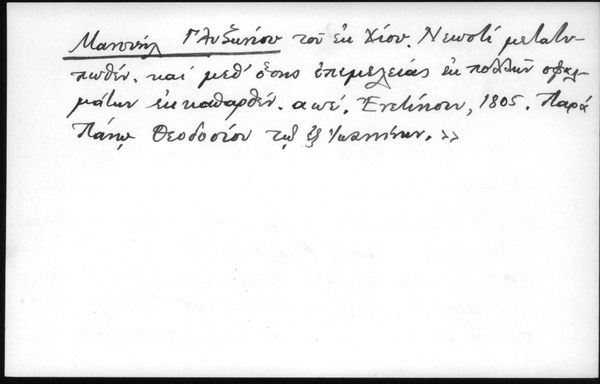 Μανουήλ Γλυζωνίου τοῦ ἐκ Χίου. Νεωστί μετατυ-
πωθέν. καί μεθ' ὅσης ἐπιμελείας ἐκ πολλῶν σφαλ-
μάτων ἐκκαθαρθέν. αωε'. Ἐνετίησιν, 1805. Παρά
Πάνῳ Θεοδοσίου τῷ ἐξ Ἰωαννίνων. >>